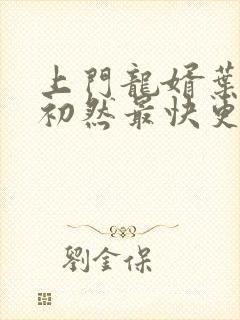 上門龍婿葉
初然最快更
劉金保